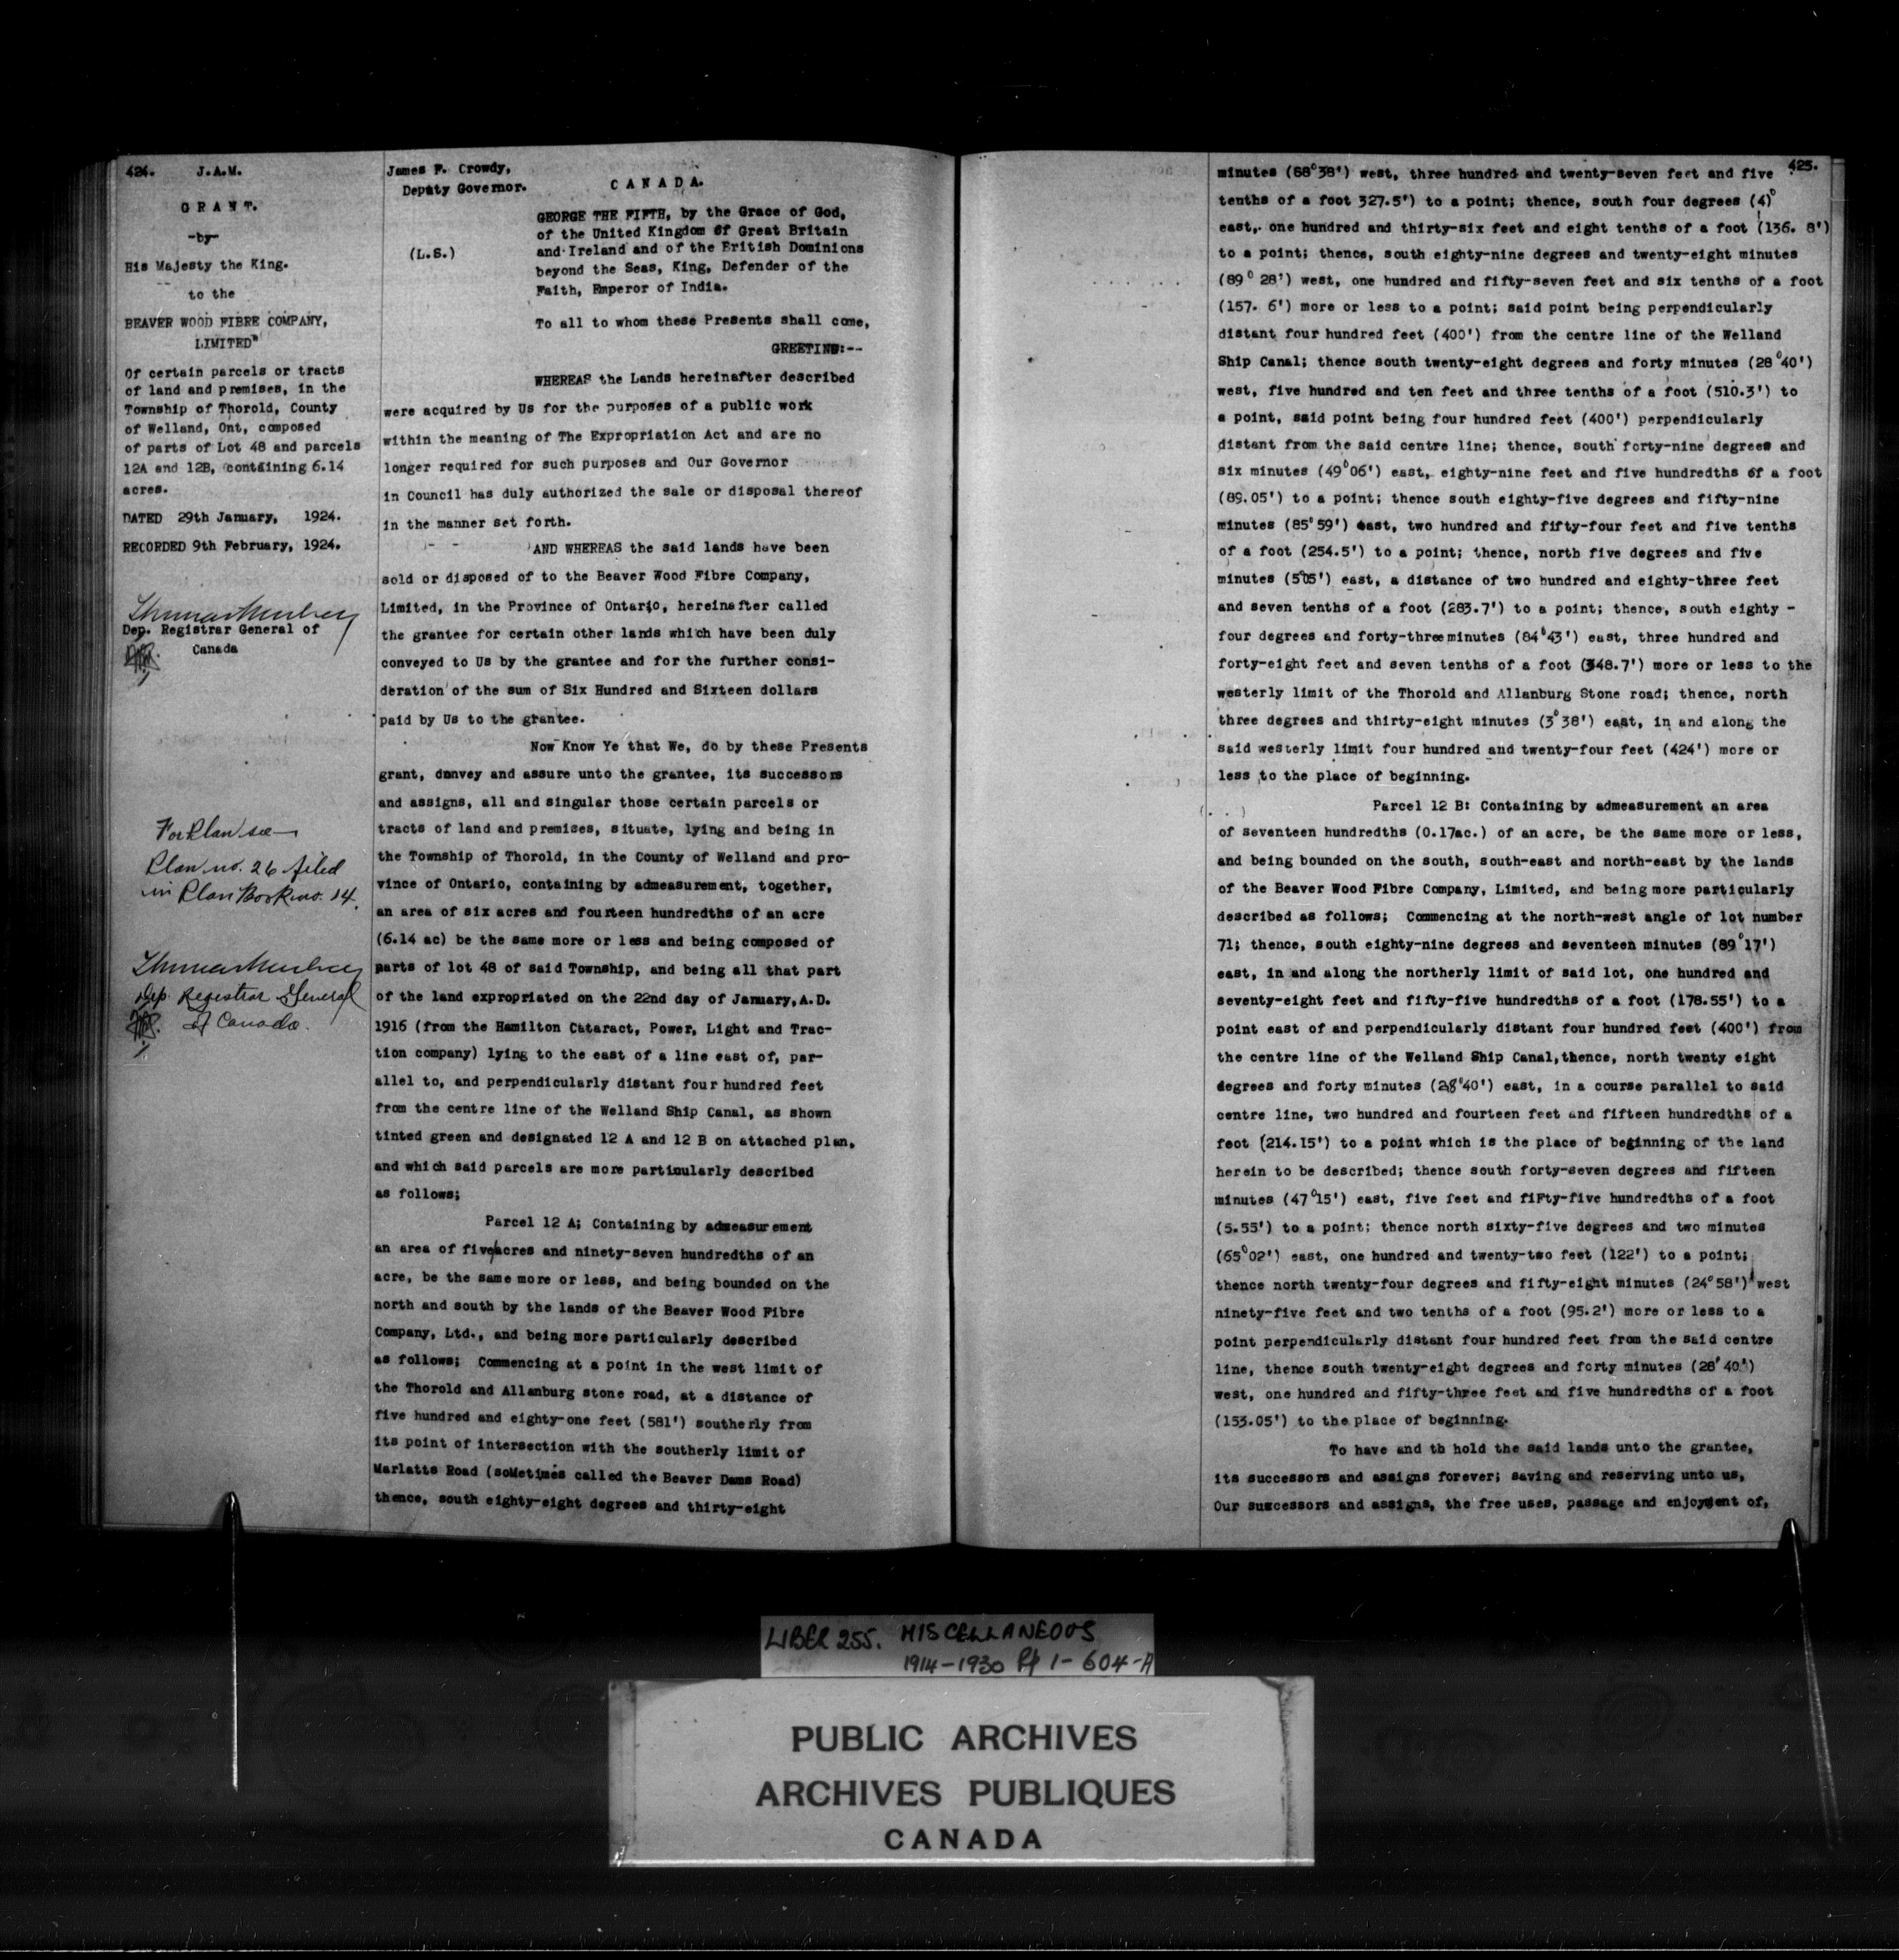 424. J.A.M.
G R A N T.
-by-
His Majesty the King.
to the
BEAVER WOOD FIBRE COMPANY,
LIMITED"
Of certain parcels or tracts
of land and premises, in the
Township of Thorold, County
of Welland, Ont, composed
of parts of Lot 48 and parcels
12A and 12B, containing 6.14
acres.
DATED 29th January, 1924.
RECORDED 9th February, 1924.
Dep. Registrar General of
Canada
For Plan see
Plan no. 26 filed
in Plan Book no. 14.
Dep. Registrar General
of Canada.
James F. Crowdy,
Deputy Governor.
C A N A D A.
(L.S.)
GEORGE THE FIFTH, by the Grace of God,
of the United Kingdom of Great Britain
and Ireland and of the British Dominions
beyond the Seas, King, Defender of the
Faith, Emperor of India.
To all to whom these Presents shall come,
GREETING:--
WHEREAS the Lands hereinafter described
were acquired by Us for the purposes of a public work
within the meaning of The Expropriation Act and are no
longer required for such purposes and Our Governor
in Council has duly authorized the sale or disposal thereof
in the manner set forth.
AND WHEREAS the said lands have been
sold or disposed of to the Beaver Wood Fibre Company,
Limited, in the Province of Ontario, hereinafter called
the grantee for certain other lands which have been duly
conveyed to Us by the grantee and for the further consi-
deration of the sum of Six Hundred and Sixteen dollars
paid by Us to the grantee.
Now Know Ye that We, do by these Presents
grant, convey and assure unto the grantee, its successors
and assigns, all and singular those certain parcels or
tracts of land and premises, situate, lying and being in
the Township of Thorold, in the County of Welland and pro-
vince of Ontario, containing by admeasurement, together,
an area of six acres and fourteen hundredths of an acre
(6.14 ac) be the same more or less and being composed of
parts of lot 48 of said Township, and being all that part
of the land expropriated on the 22nd day of January,A.D.
1916 (from the Hamilton Cataract, Power, Light and Trac-
tion company) lying to the east of a line east of, par-
allel to, and perpendicularly distant four hundred feet
from the centre line of the Welland Ship Canal, as shown
tinted green and designated 12 A and 12 B on attached plan,
and which said parcels are more particularly described
as follows;
Parcel 12 A; Containing by admeasurement
an area of five/acres and ninety-seven hundredths of an
acre, be the same more or less, and being bounded on the
north and south by the lands of the Beaver Wood Fibre
Company, Ltd., and being more particularly described
as follows; Commencing at a point in the west limit of
the Thorold and Allanburg stone road, at a distance of
five hundred and eighty-one feet (581') southerly from
its point of intersection with the southerly limit of
Marlatts Road (soMetimes called the Beaver Dams Road)
thence, south eighty-eight degrees and thirty-eight
425.
minutes (88°38') west, three hundred and twenty-seven feet and five
tenths of a foot 327.5') to a point; thence, south four degrees (4)°
east, one hundred and thirty-six feet and eight tenths of a foot (136. 8')
to a point; thence, south eighty-nine degrees and twenty-eight minutes
(89° 28') west, one hundred and fifty-seven feet and six tenths of a foot
(157. 6') more or less to a point; said point being perpendicularly
distant four hundred feet (400') from the centre line of the Welland
Ship Canal; thence south twenty-eight degrees and forty minutes (28°40')
west, five hundred and ten feet and three tenths of a foot (510.3') to
a point, said point being four hundred feet (400') perpendicularly
distant from the said centre line; thence, south forty-nine degrees and
six minutes (49°06') east, eighty-nine feet and five hundredths of a foot
(89.05') to a point; thence south eighty-five degrees and fifty-nine
minutes (85°59') east, two hundred and fifty-four feet and five tenths
of a foot (254.5') to a point; thence, north five degrees and five
minutes (5°05') east, a distance of two hundred and eighty-three feet
and seven tenths of a foot (283.7') to a point; thence, south eighty -
four degrees and forty-three minutes (84°43') east, three hundred and
forty-eight feet and seven tenths of a foot (348.7') more or less to the
westerly limit of the Thorold and Allanburg Stone road; thence, north
three degrees and thirty-eight minutes (3°38') east, in and along the
said westerly limit four hundred and twenty-four feet (424') more or
less to the place of beginning.
Parcel 12 B: Containing by admeasurement an area
of seventeen hundredths (0.17ac.) of an acre, be the same more or less,
and being bounded on the south, south-east and north-east by the lands
of the Beaver Wood Fibre Company, Limited, and being more particularly
described as follows; Commencing at the north-west angle of lot number
71; thence, south eighty-nine degrees and seventeen minutes (89°17')
east, in and along the northerly limit of said lot, one hundred and
seventy-eight feet and fifty-five hundredths of a foot (178.55') to a
point east of and perpendicularly distant four hundred feet (400') from
the centre line of the Welland Ship Canal,thence, north twenty eight
degrees and forty minutes (28°40') east, in a course parallel to said
centre line, two hundred and fourteen feet and fifteen hundredths of a
foot (214.15') to a point which is the place of beginning of the land
herein to be described; thence south forty-seven degrees and fifteen
minutes (47°15') east, five feet and fiFty-five hundredths of a foot
(5.55') to a point; thence north sixty-five degrees and two minutes
(65°02') east, one hundred and twenty-two feet (122') to a point;
thence north twenty-four degrees and fifty-eight minutes (24°58') west
ninety-five feet and two tenths of a foot (95.2') more or less to a
point perpendicularly distant four hundred feet from the said centre
line, thence south twenty-eight degrees and forty minutes (28°40')
west, one hundred and fifty-three feet and five hundredths of a foot
(153.05') to the place of beginning.
To have and to hold the said lands unto the grantee,
its successors and assigns forever; saving and reserving unto us,
Our successors and assigns, the free uses, passage and enjoyment of,
LIBER 255. MISCELLANEOUS
1914-1930 Pp 1-604-A
PUBLIC ARCHIVES
ARCHIVES PUBLIQUES
CANADA